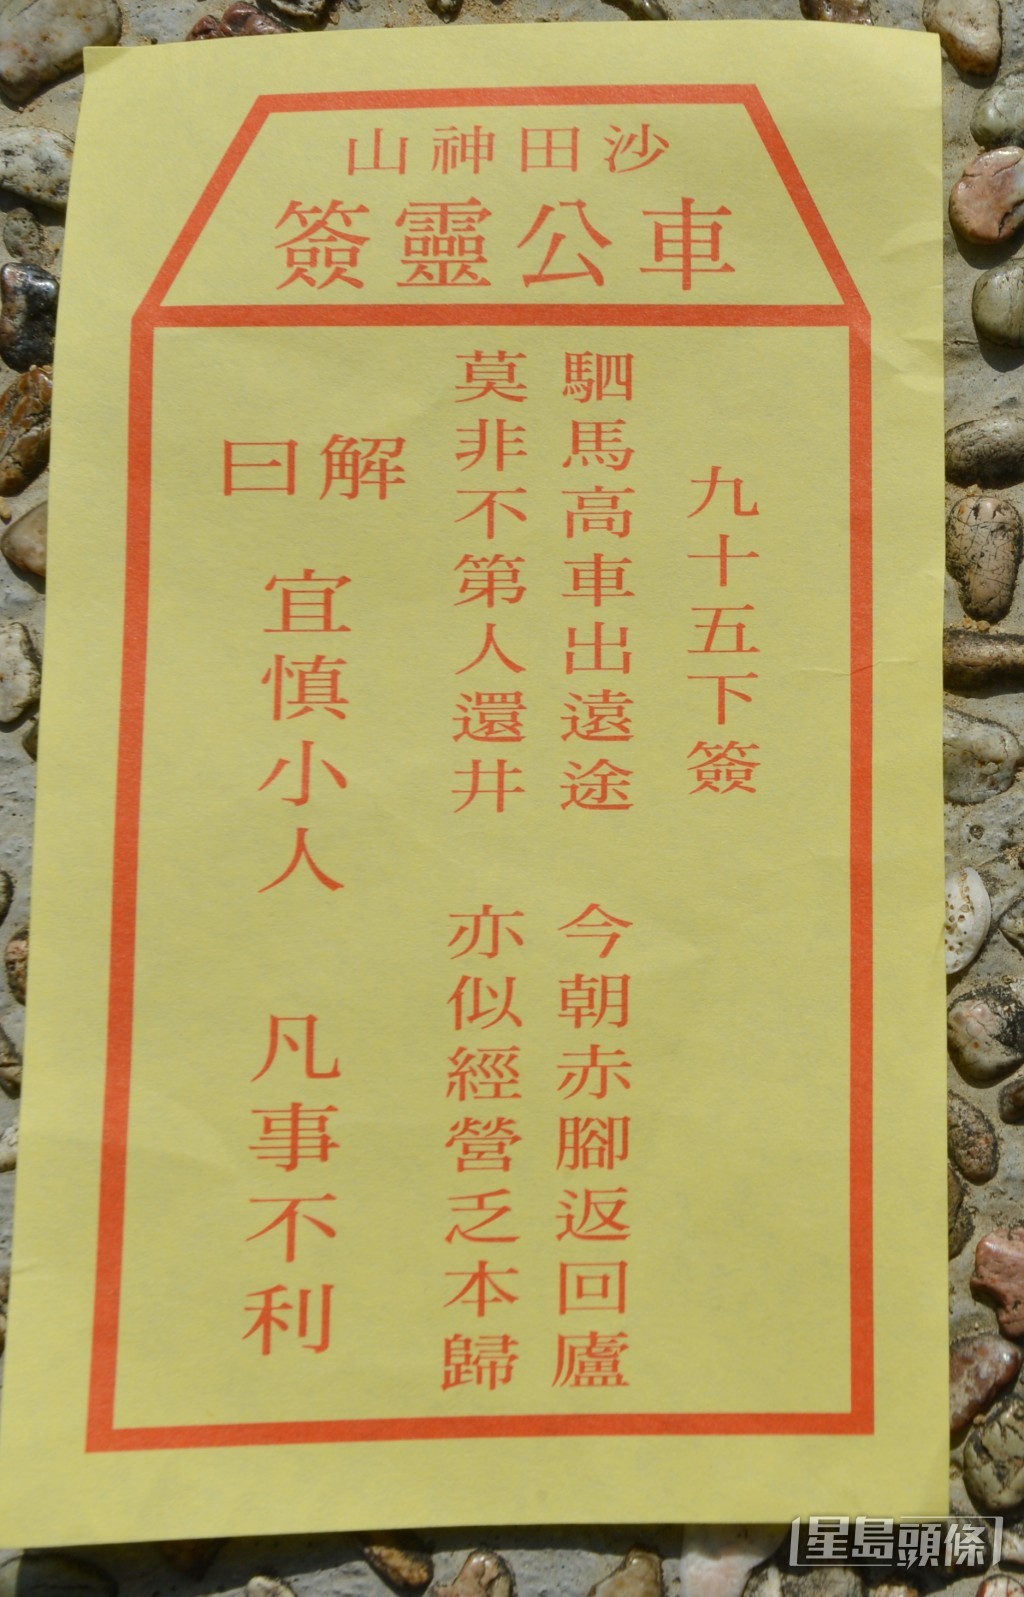 沙田神山
車公靈簽
九十五下簽
駟馬高車出遠途 今朝赤腳返回廬
莫非不第人還井 亦似經營乏本歸
解曰
宜慎小人 凡事不利
星島頭條